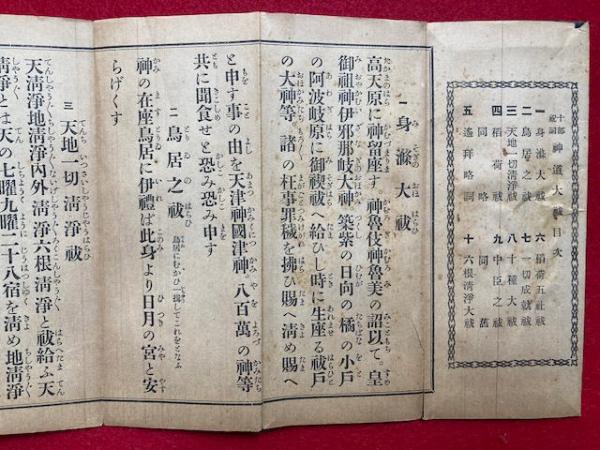 十部祝詞 神道大祓目次
一 身滌大祓 六 稻荷五社祓
二 鳥居之祓 七 一切成就祓
三 天地一切清淨祓 八 十種大祓
四 稻荷祓 九 中臣之祓
同 略 同
五 遙拜略詞 十 六根清淨大祓
一 身滌大祓
高天原に神留座す。神魯伎神魯美の詔以て。皇
御祖神伊邪那岐大神。築紫の日向の橘の小戶
の阿波岐原に御禊祓へ給ひし時に生座る祓戶
の大神等。諸の枉事罪穢を拂ひ賜へ淸め賜へ
と申す事の由を天津神國津神。八百萬の神等
共に聞食せと恐み恐み申す
二 鳥居之祓 鳥居にむかひ一揖してこれをとなふ
神の在座鳥居に伊禮ば此身より日月の宮と安
らげくす
三 天地一切淸淨祓
天淸淨地淸淨內外淸淨六根淸淨と祓給ふ天
淸淨とは天の七曜九曜二十八宿を淸め地淸淨